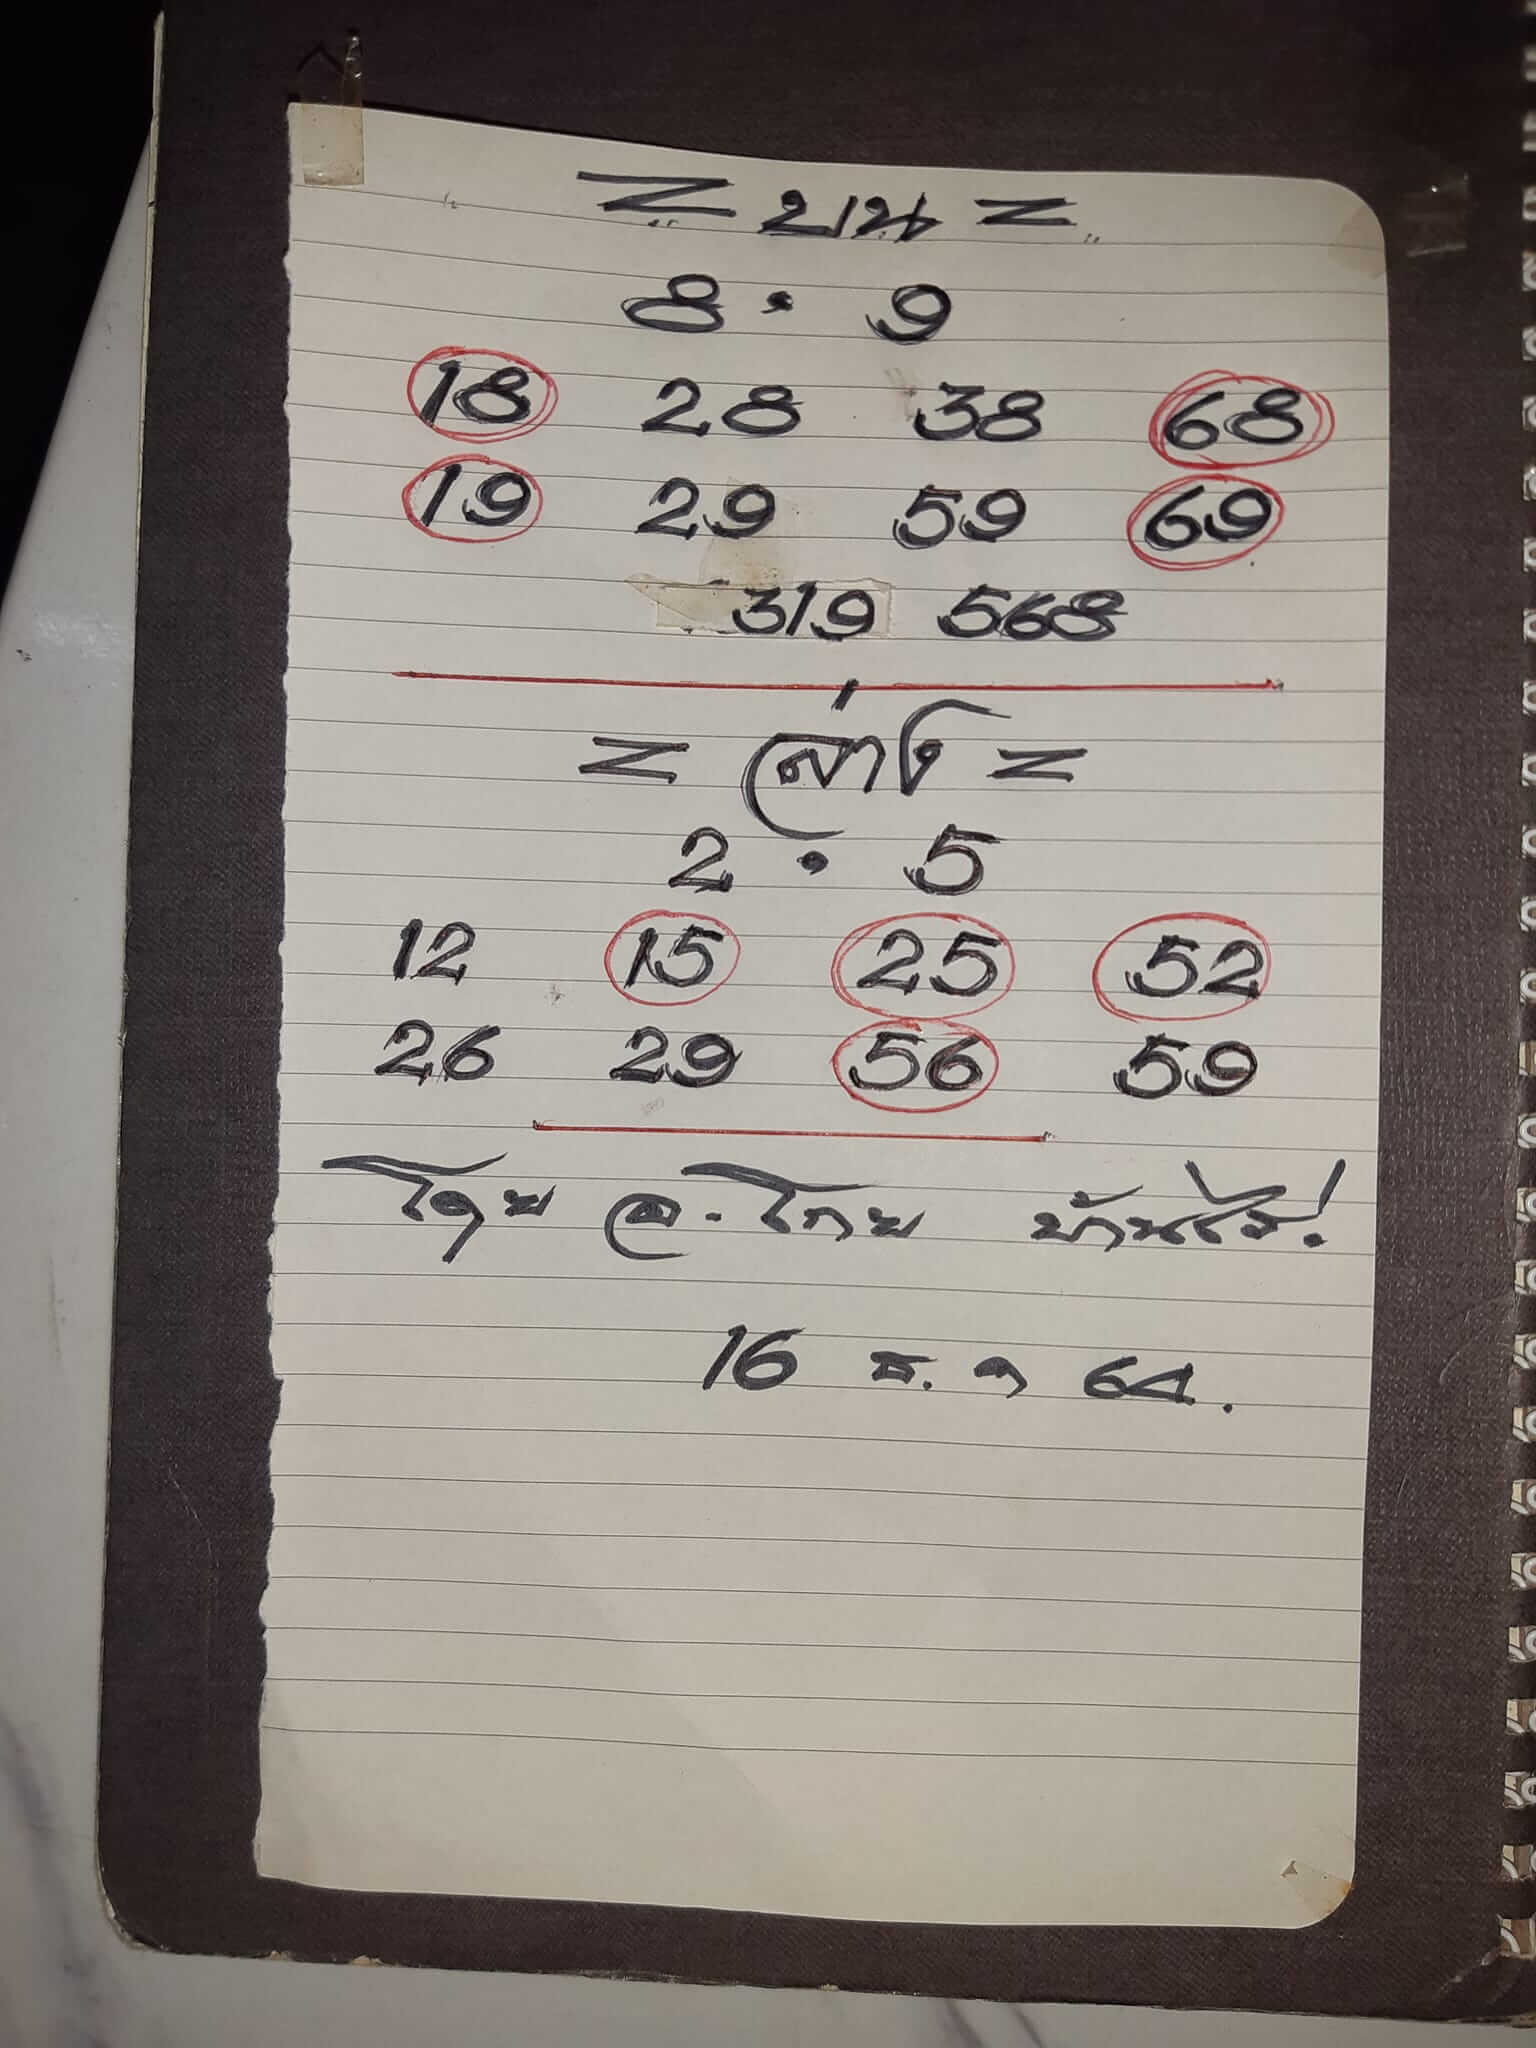 = บน =
8 • 9
18 28 38 68
19 29 59 69
319 568
= ล่าง =
2 • 5
12 15 25 52
26 29 56 59
โดย อ. โกย บ้านไร่!
16 ธ. ค 64.